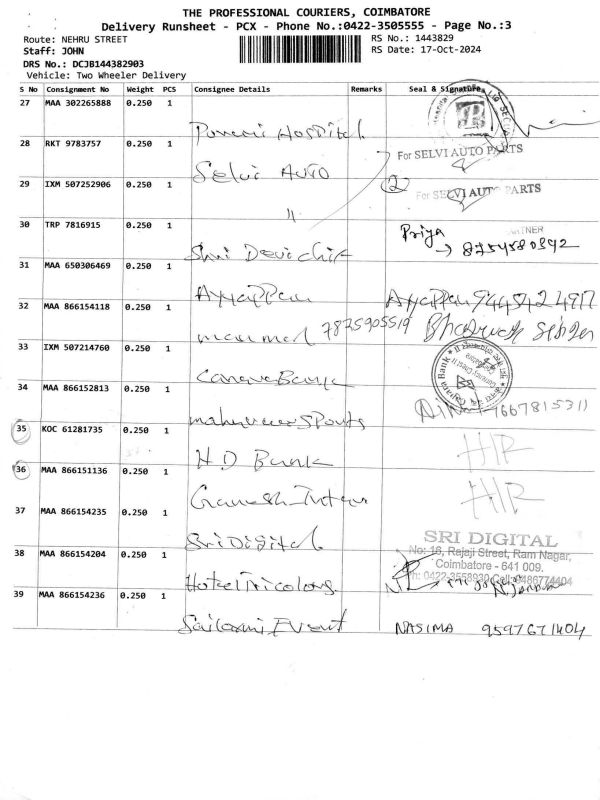 THE PROFESSIONAL COURIERS, COIMBATORE
Delivery Runsheet - PCX - Phone No.:0422-3505555 - Page No.:3
Route: NEHRU STREET RS No.: 1443829
Staff: JOHN RS Date: 17-Oct-2024
DRS No.: DCJB144382903
Vehicle: Two Wheeler Delivery
S No Consignment No Weight PCS Consignee Details Remarks Seal & Signature
27 MAA 302265888 0.250 1
Hospital
28 RKT 9783757 0.250 1 For SELVI AUTO PARTS
Selvi Auto
29 IXM 507252906 0.250 1 2 For SELVI AUTO PARTS
"
30 TRP 7816915 0.250 1 Priya
Shri Devi chit 8754580392
31 MAA 650306469 0.250 1
Ayyappan Ayyappan
32 MAA 866154118 0.250 1
7825905519
33 IXM 507214760 0.250 1
Canara Bank
34 MAA 866152813 0.250 1
7667815311
Sports
35 KOC 61281735 0.250 1
HD Bank
36 MAA 866151136 0.250 1
Ganesh
37 MAA 866154235 0.250 1
Sri Digital SRI DIGITAL
No: 16, Rajaji Street, Ram Nagar,
38 MAA 866154204 0.250 1 Coimbatore - 641 009.
Ph: 0422-3558930 Cell: 9486774404
Hotel Tricolong
39 MAA 866154236 0.250 1
Sailaxmi Event NASIMA 9597671404